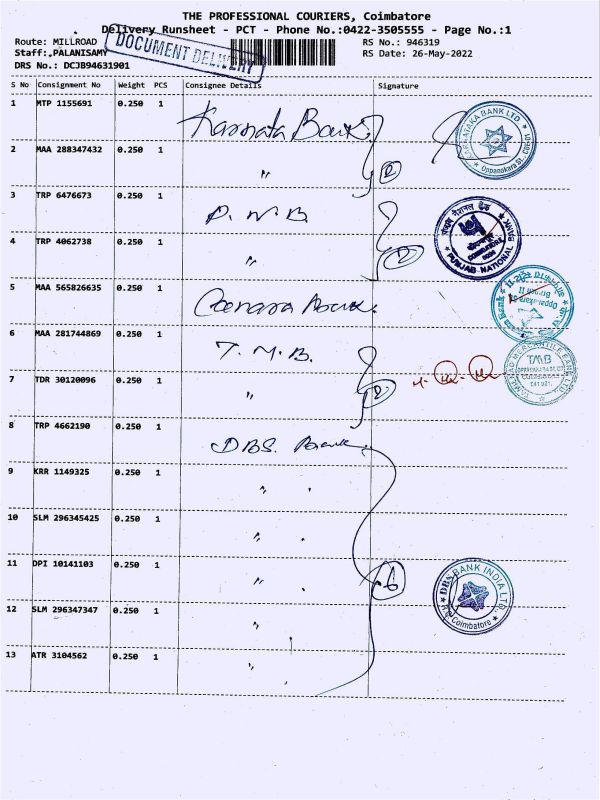 THE PROFESSIONAL COURIERS, Coimbatore
Delivery Runsheet - PCT - Phone No.:0422-3505555 - Page No.:1
Route: MILLROAD RS No.: 946319
Staff: PALANISAMY RS Date: 26-May-2022
DRS No.: DCJB94631901
DOCUMENT DELIVERY
S No Consignment No Weight PCS Consignee Details Signature
1 MTP 1155691 0.250 1 Karnataka Bank
KARNATAKA BANK LTD. Oppanakara St. CVE01
2 MAA 288347432 0.250 1 " 2
3 TRP 6476673 0.250 1 P. N. B.
पंजाब नैशनल बैंक PUNJAB NATIONAL BANK
4 TRP 4062738 0.250 1 " 2
5 MAA 565826635 0.250 1 Canara Bank.
Oppanakara St. Branch II
6 MAA 281744869 0.250 1 T. M. B.
TAMILNAD MERCANTILE BANK LTD. TMB
7 TDR 30120096 0.250 1 " 2
8 TRP 4662190 0.250 1 DBS. Bank
9 KRR 1149325 0.250 1 "
10 SLM 296345425 0.250 1 "
11 DPI 10141103 0.250 1 " 6
DBS BANK INDIA LTD. Coimbatore
12 SLM 296347347 0.250 1 "
13 ATR 3104562 0.250 1 "